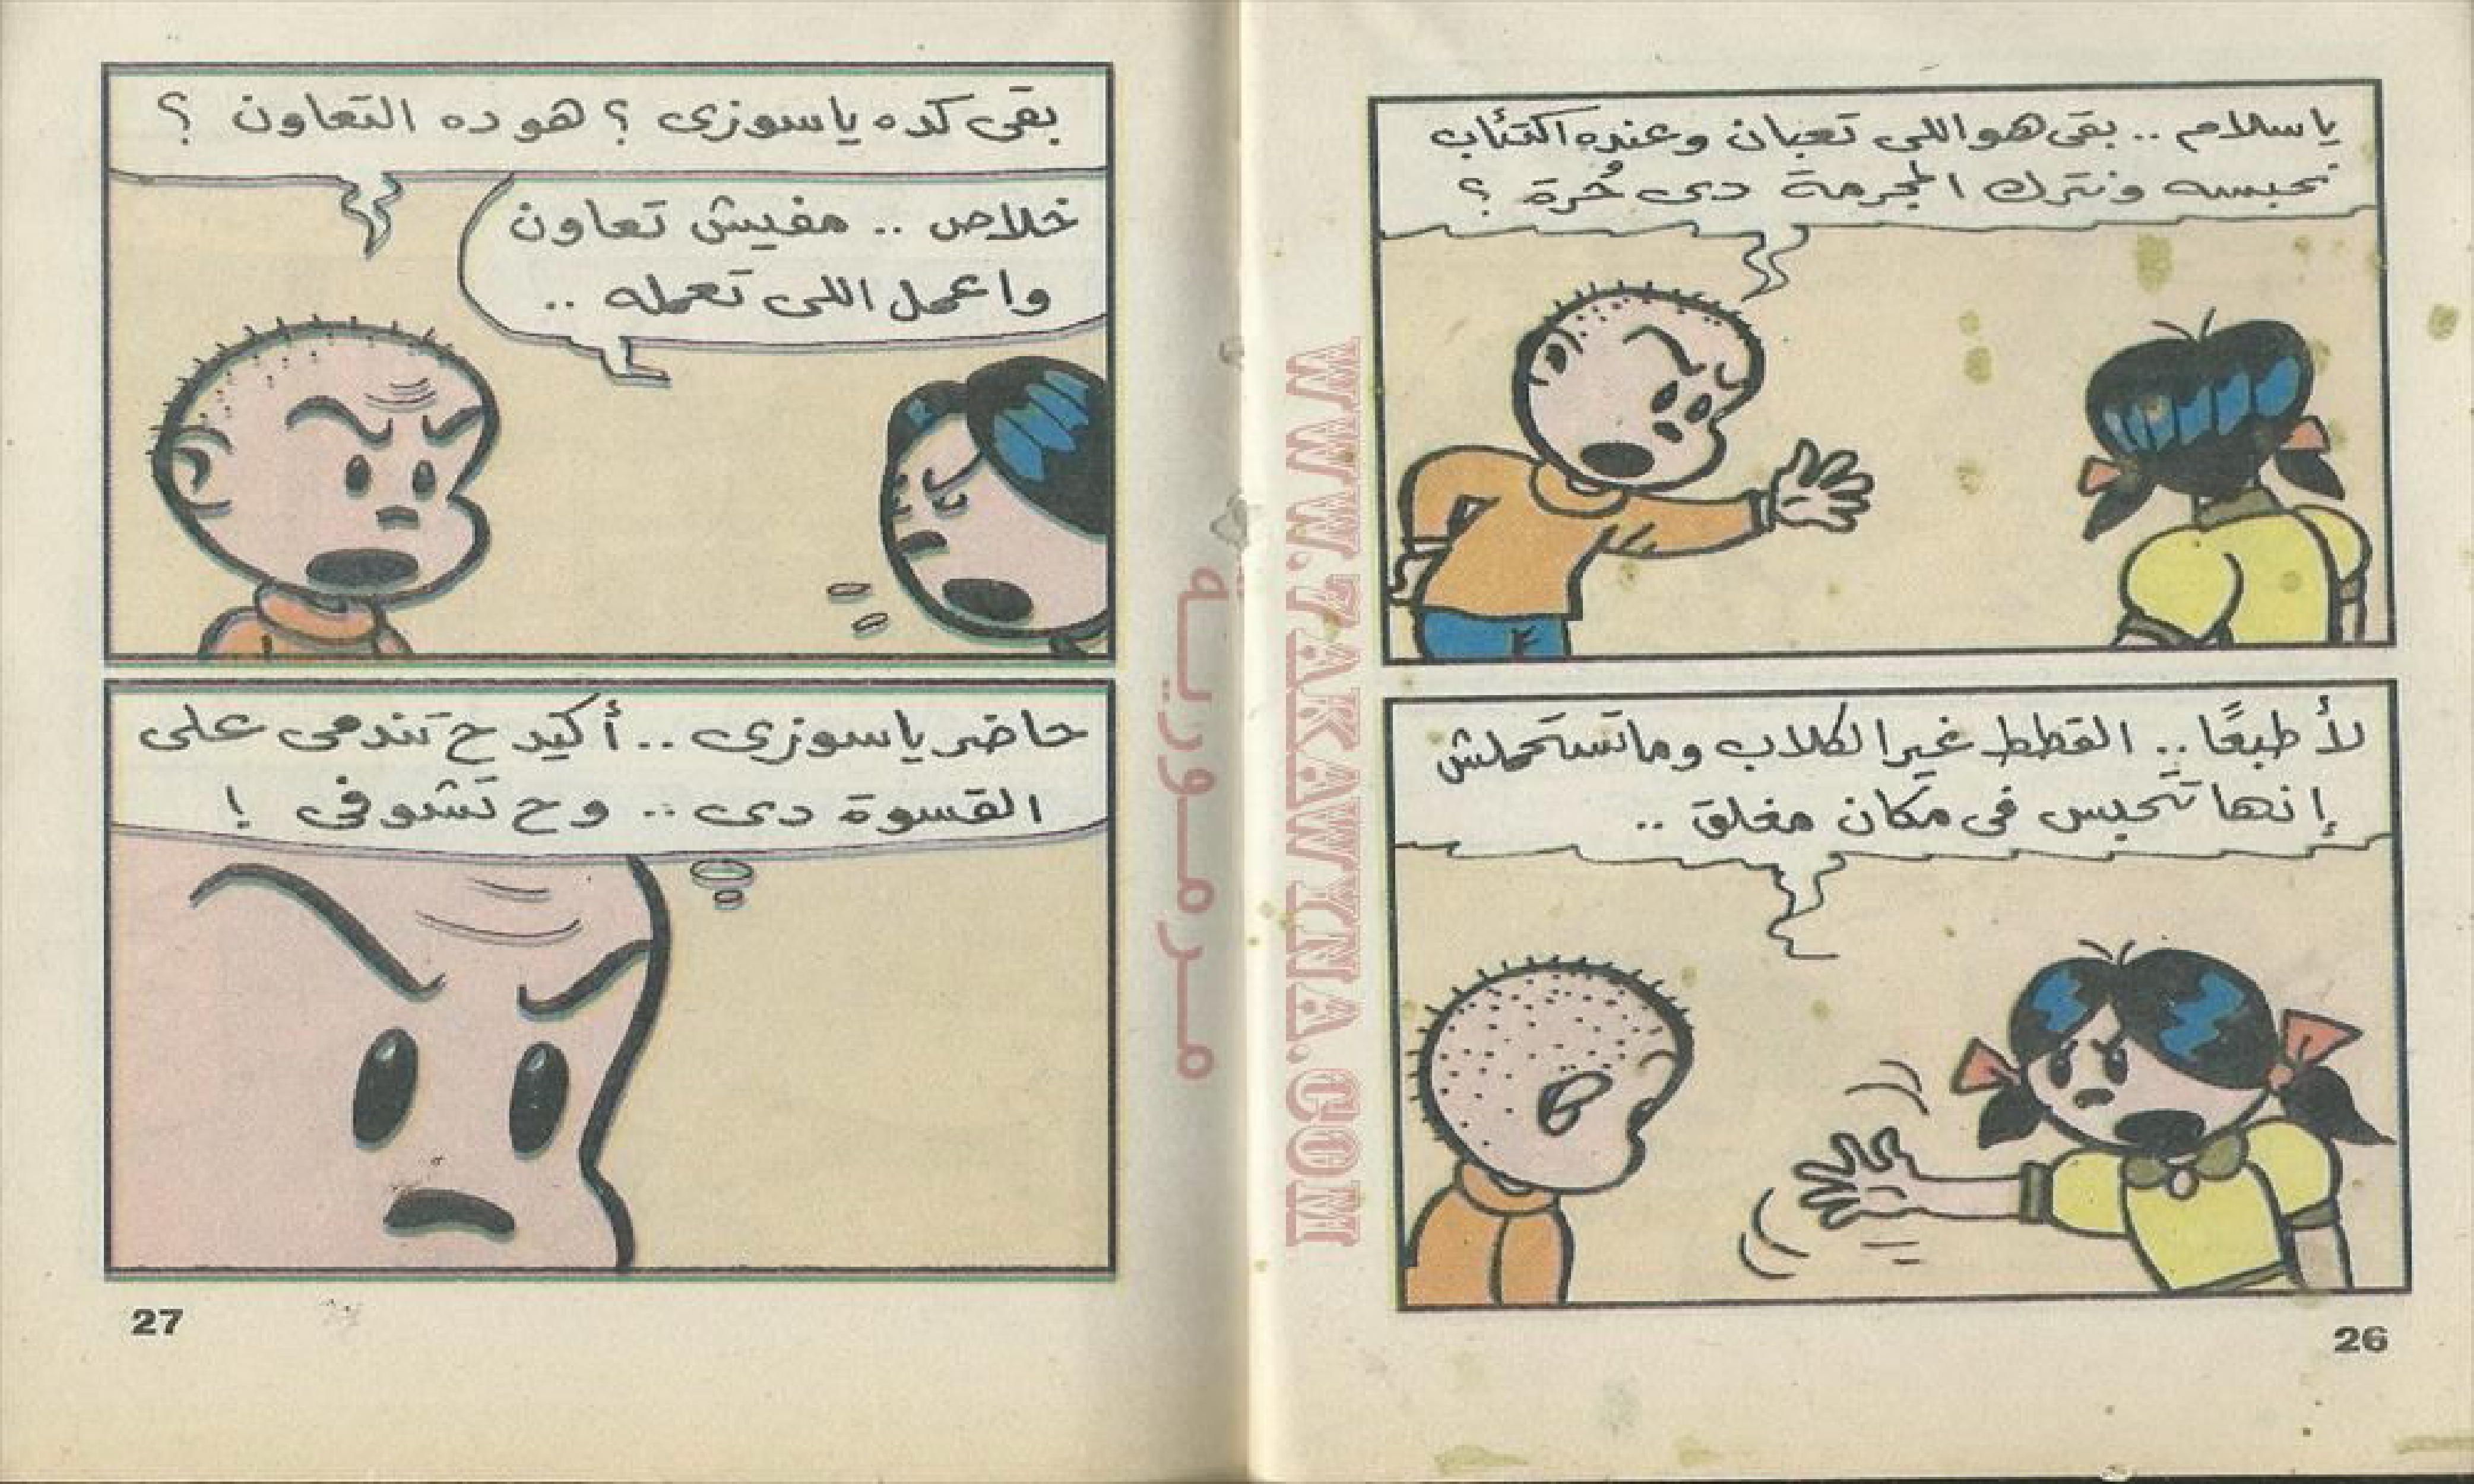 ياسلام .. بقى هو اللى تعبان وعنده اكتئاب
نحبسه ونترك المجرمة دى حُرة ؟
لأ طبعًا .. القطط غير الكلاب وماتستحملش
إنها تتحبس فى مكان مغلق ..
26
بقى كده ياسوزى ؟ هو ده التعاون ؟
خلاص .. مفيش تعاون
واعمل اللى تعمله ..
حاضر ياسوزى .. أكيد ح تندمى على
القسوة دى .. وح تشوفى !
27
WWW.7AKAWYNA.COM
مرمورية